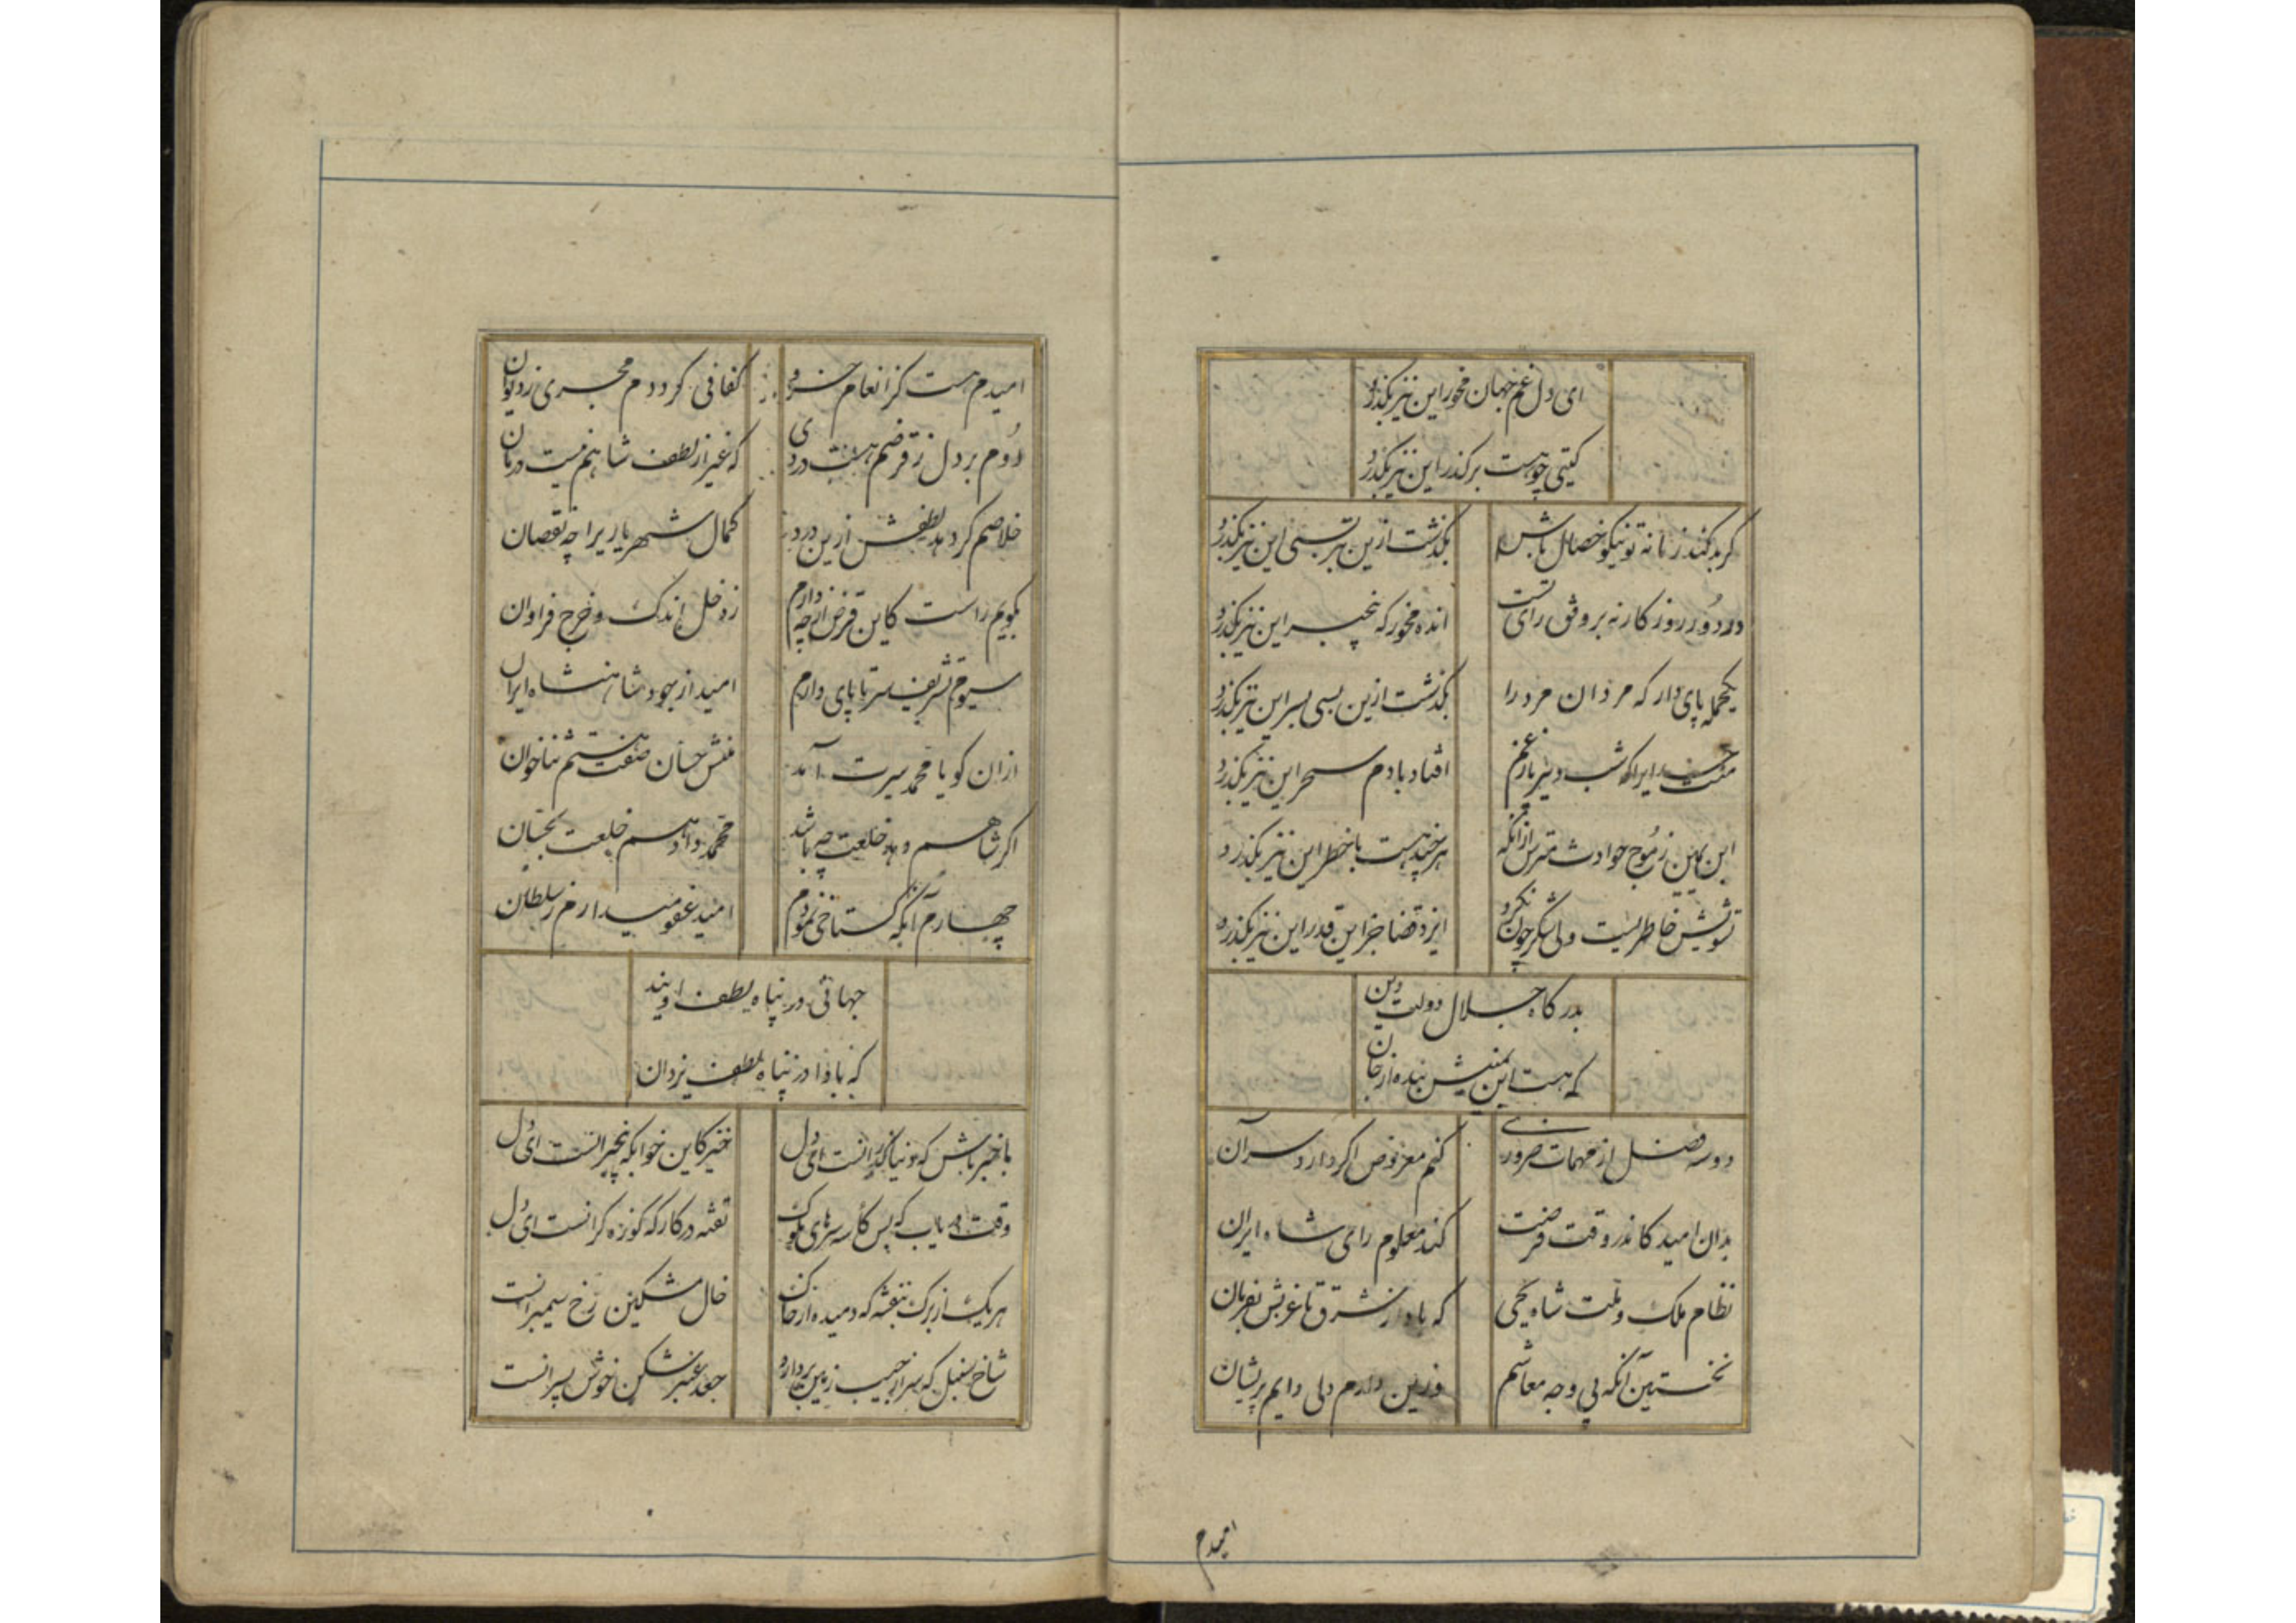 ای دل غم جهان مخور این نیز بگذرد
گیتی چو هست برگذر این نیز بگذرد
گر بد کند زمانه تو نیکو خصال باش بگذشت ازین بتر بسی این نیز بگذرد
در دور روزگار نه بر وفق رای تست انده مخور که بیخبر این نیز بگذرد
یکحمله پای دار که مردان مرد را بگذشت ازین بسی بسر این نیز بگذرد
منت خدایرا که شب دیر باز غم افتاد با دم سحر این نیز بگذرد
ابن یمین ز موج حوادث مترس از آنکه هرچند هست با خطر این نیز بگذرد
تشویش خاطریست ولی شکر چون نکرد ایزد قضا جز این قدر این نیز بگذرد
بدرگاه جلال دولت و دین
که هست ابن یمینش بنده از جان
دو سه فصل از مهمات ضروری کنم معروض اگر دارد سر آن
بدان امید کاندر وقت فرصت کند معلوم رای شاه ایران
نظام ملک و ملت شاه یحیی که باد از شرق تا غربش بفرمان
نخستین آنکه بی وجه معاشم وزین دارم دلی دایم پریشان
امیدم
امیدم هست کز انعام خسرو کفافی گرددم مجری ز دیوان
دوم بر دل ز قرضم هست دردی که غیر از لطف شاهم نیست درمان
خلاصم گر دهد لطفش ازین درد کمال شهریاریرا چه نقصان
بگویم راست کاین قرض از چه دارم ز دخل اندک و خرج فراوان
سیوم تشریف سر تا پای دارم امید از جود شاهنشاه ایران
از ان کو یا محمد سیرت آمد منش حسان صفت هستم ثناخوان
اگر شاهم دهد خلعت چه باشد محمد داد هم خلعت بحسان
چهارم آنکه گستاخی نمودم امید عفو میدارم ز سلطان
جهانی در پناه لطف اویند
که بادا در پناه لطف یزدان
باخبر باش که دنیا گذرانست ای دل خیز کاین خوابگه بیخبرانست ای دل
وقت دریاب که پس کاسه سرهای ملوک تعبئه در کارگه کوزه گرانست ای دل
هر یک از برگ بنفشه که دمیده از خاک خال مشکین رخ سیمبرانست
شاخ سنبل که سر از جیب زمین بردارد جعد عنبر شکن خوش پسرانست